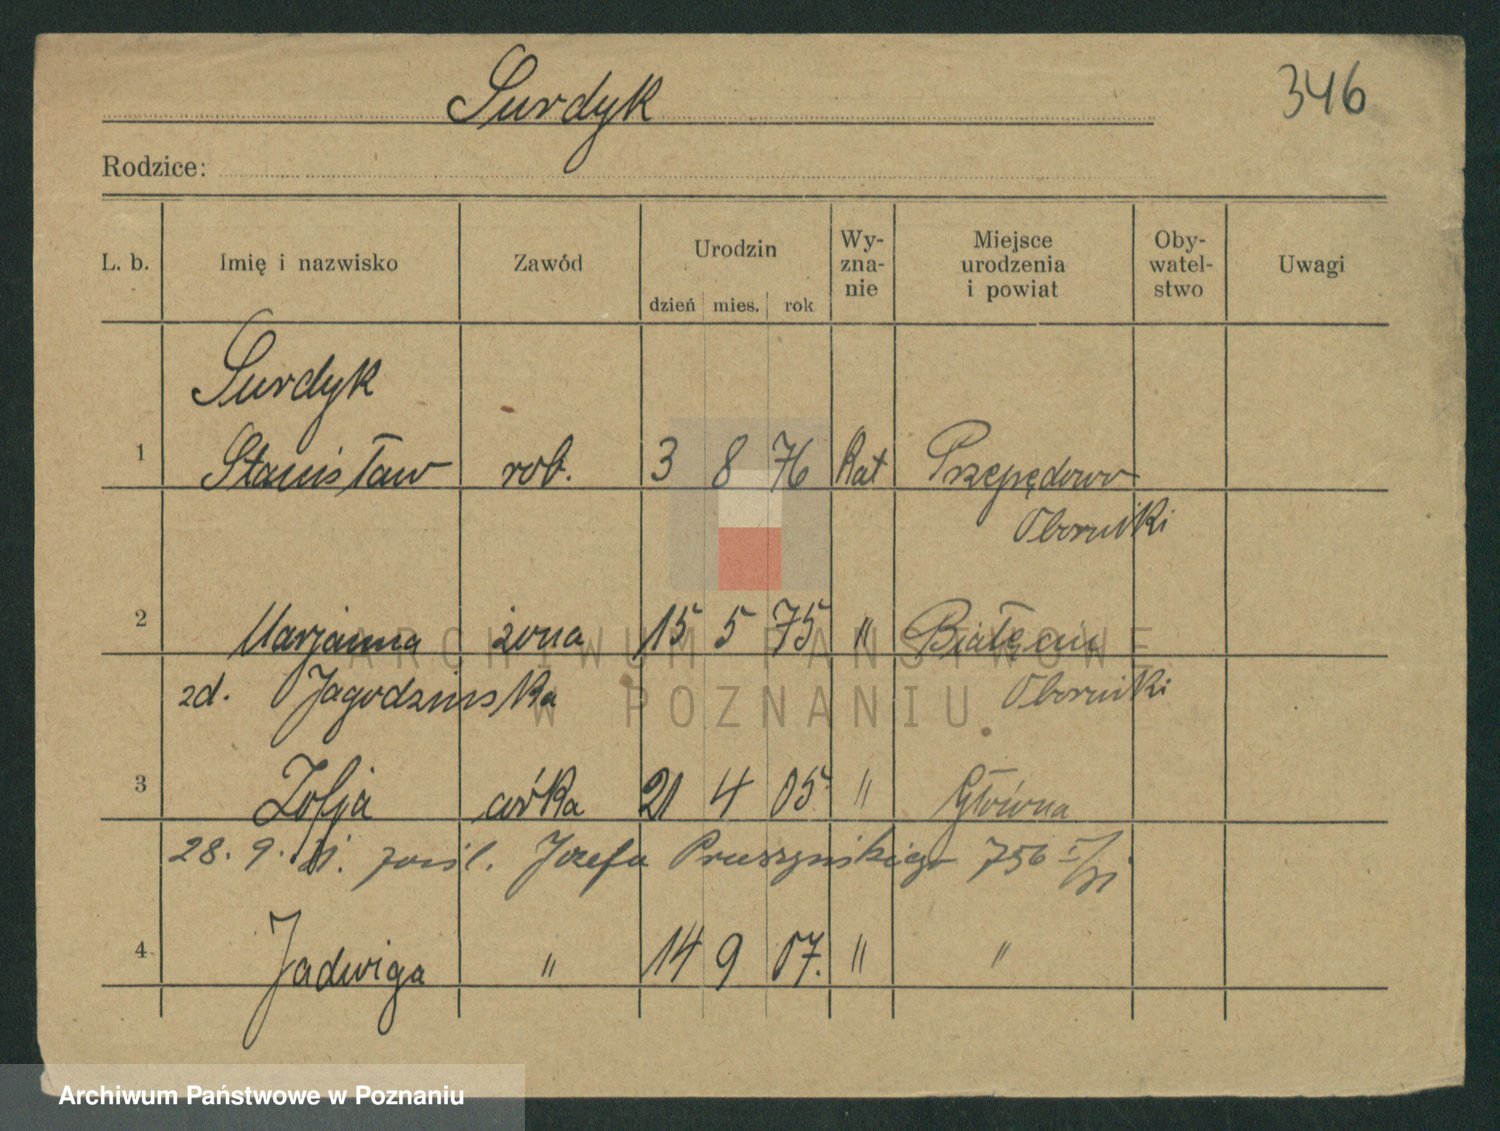 Surdyk
346
Rodzice:
L. b. Imię i nazwisko Zawód Urodzin dzień mies. rok Wy-zna-nie Miejsce urodzenia i powiat Oby-watel-stwo Uwagi
Surdyk
1 Stanisław rob. 3 8 76 Kat Przepędowo
Oborniki
2 Marjanna żona 15 5 75 " Białężin
zd. Jagodzinska Oborniki
3 Zofja córka 21 4 05 " Główna
28. 9. 21. pośl. Józefa Pruszyńskiego 756
4 Jadwiga " 14 9 07. " "
ARCHIWUM PAŃSTWOWE
W POZNANIU
Archiwum Państwowe w Poznaniu